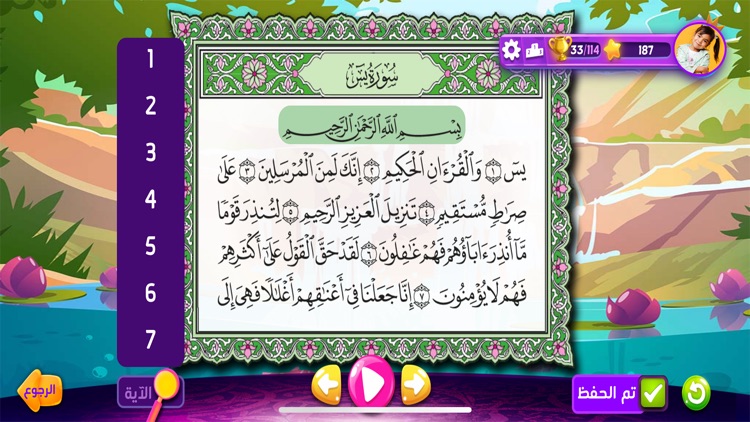 33/114
187
1
2
3
4
5
6
7
سُورَةُ يسٓ
بِسْمِ ٱللَّهِ ٱلرَّحْمَٰنِ ٱلرَّحِيمِ
يسٓ ١ وَٱلْقُرْءَانِ ٱلْحَكِيمِ ٢ إِنَّكَ لَمِنَ ٱلْمُرْسَلِينَ ٣ عَلَىٰ
صِرَٰطٍ مُّسْتَقِيمٍ ٤ تَنزِيلَ ٱلْعَزِيزِ ٱلرَّحِيمِ ٥ لِتُنذِرَ قَوْمًا
مَّآ أُنذِرَ ءَابَآؤُهُمْ فَهُمْ غَٰفِلُونَ ٦ لَقَدْ حَقَّ ٱلْقَوْلُ عَلَىٰٓ أَكْثَرِهِمْ
فَهُمْ لَا يُؤْمِنُونَ ٧ إِنَّا جَعَلْنَا فِىٓ أَعْنَٰقِهِمْ أَغْلَٰلًا فَهِىَ إِلَى
الرجوع
الآية
تم الحفظ